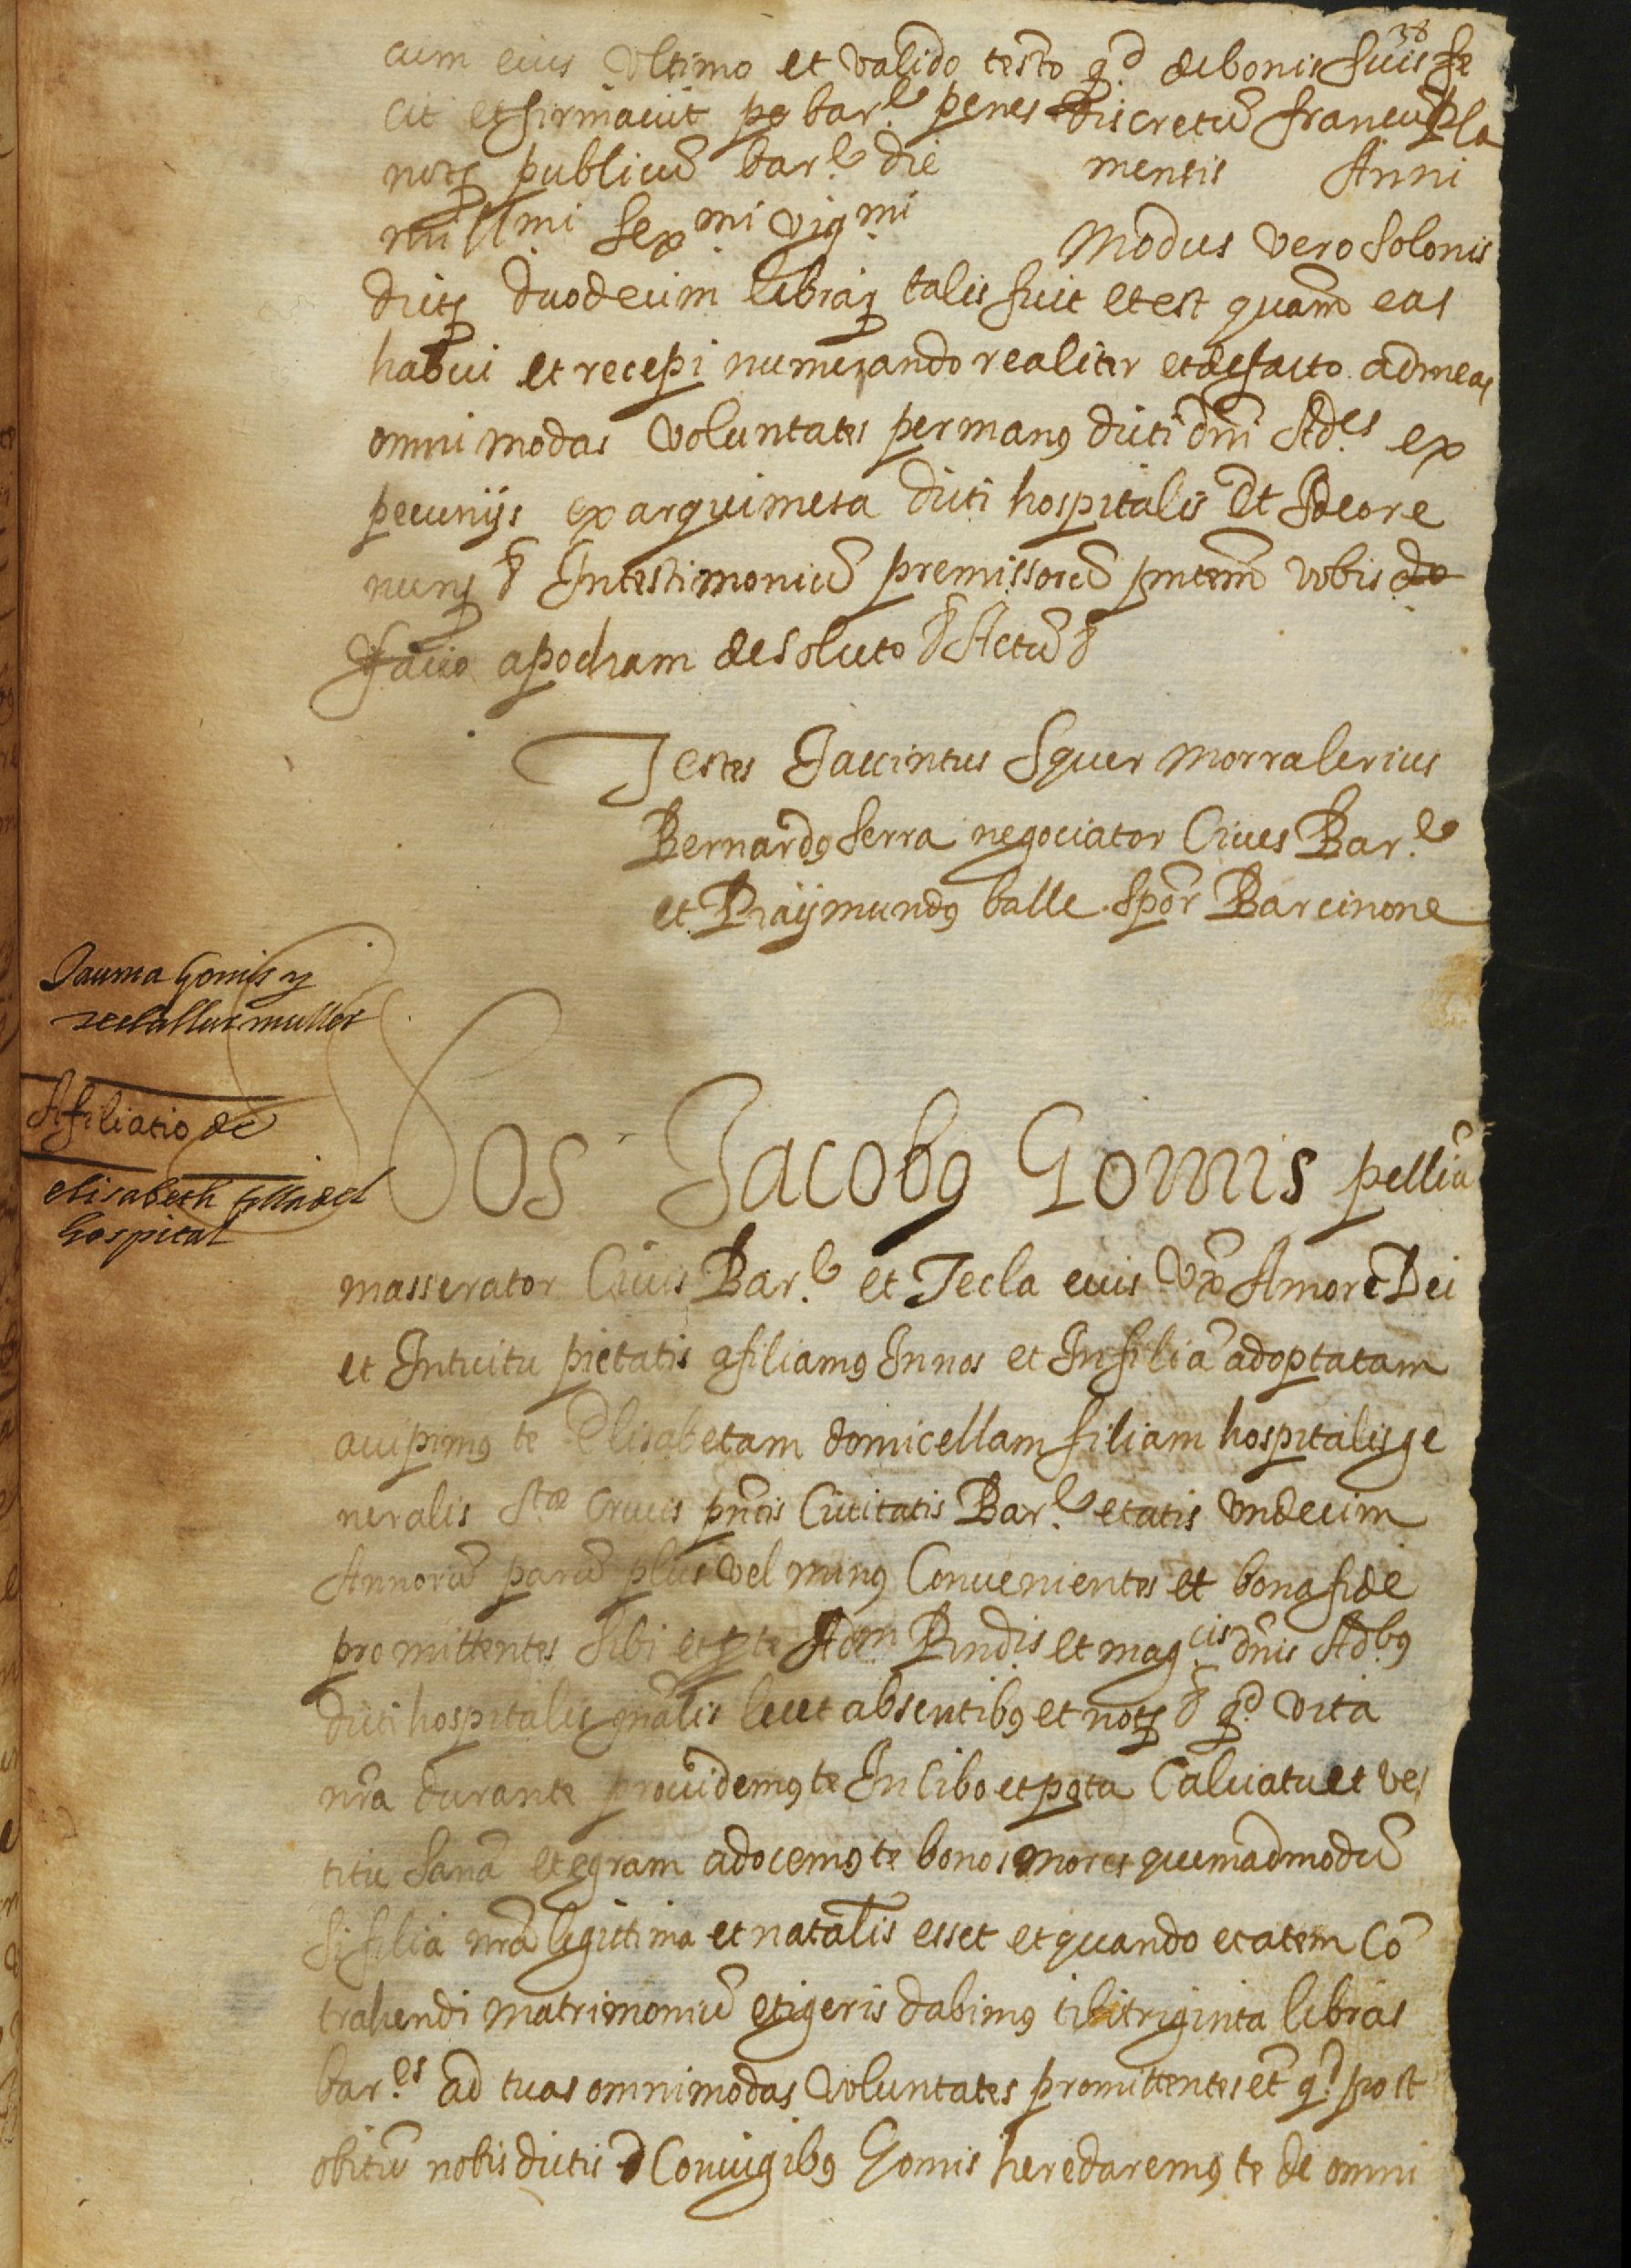 38
cum eius Vltimo et valido testo qd de bonis suis fe
cit et firmauit po bar.e penes discretu francu pla
notm publicu bar.e die mensis Anni
mill.mi sex.mi vig.mi Modus vero solonis
dictm duodecim librar talis fuit et est quam eas
habui et recepi numerando realiter et de facto ad meas
omni modas voluntates per manus dicti dni Ad.es ex
pecunijs ex arquimesa dicti hospitalis Et Ideo re
nuns & In testimoniu premissoru pntem vobis do
facio apocham de soluto & Actu &
Testes Jaccintus Squer morralerius
Bernardus serra negociator Ciues Bar.e
et Raijmundus balle spor Barcinone
Jauma Gomis y
tecla sa muller
Afiliatio de
elisabeth filla del
hospital
Nos Jacobus Gomis pellia
masserator Ciuis Bar.e et Tecla eius Vx Amore Dei
et Intuitu pietatis afiliamus In nos et In filia adoptatam
accipimus te Elisabetam domicellam filiam hospitalis ge
neralis Stae Crucis pntis Ciuitatis Bar.e etatis vndecim
Annoru paru plus vel minus Conuenientes et bona fide
promittentes tibi et p te Adm Rndis et mag.cis dnis Ad.bus
dicti hospitalis gnalis licet absentibus et notm & qd vita
nra durante prouidemus te In cibo et potu Calciatu et ves
titu sana et egram adocemus te bonos mores quemadmodu
si filia nra legittima et natalis esset et quando etatem Co
trahendi matrimoniu etigeris dabimus tibi triginta libras
bar.es ad tuas omnimodas voluntates promittentes et qd post
obitu nobis dictis Coniugibus Gomis heredaremus te de omni